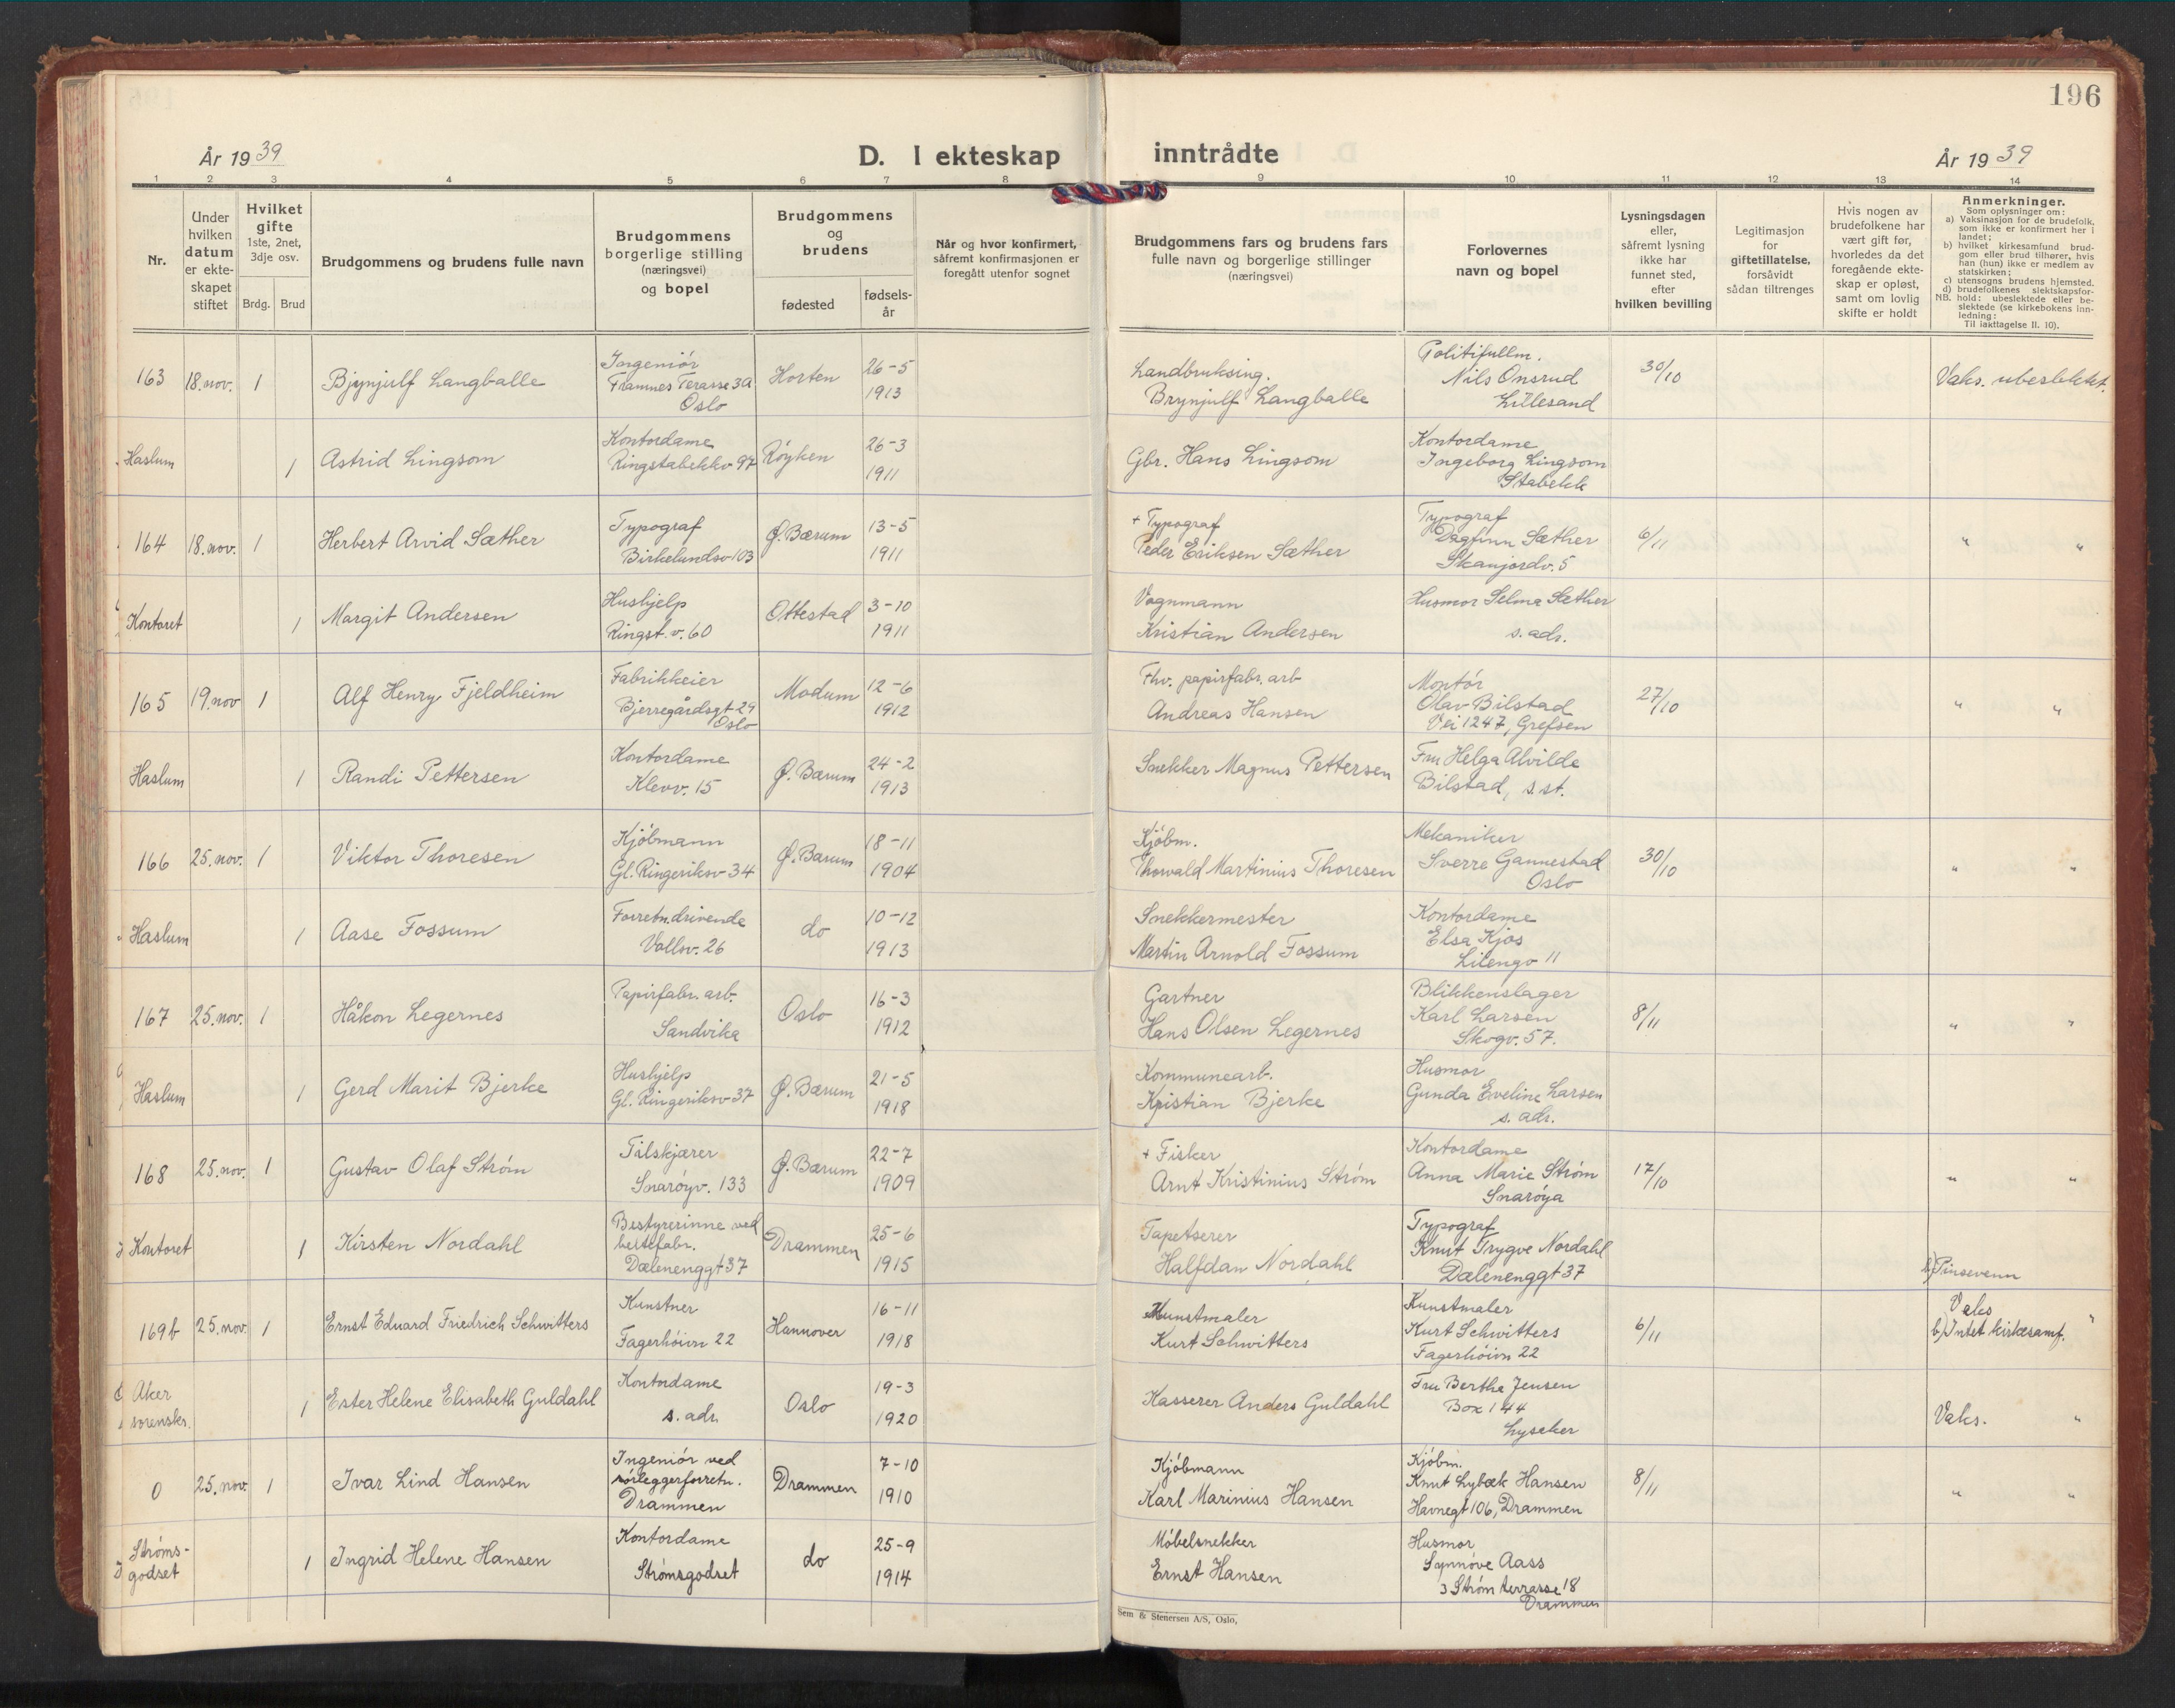 196
År 1939
D. I ekteskap
inntrådte
År 1939
1 2 3 4 5 6 7 8 9 10 11 12 13 14
Nr.
Under
hvilken
datum
er ekte-
skapet
stiftet
Hvilket
gifte
1ste, 2net,
3dje osv.
Brdg. Brud
Brudgommens og brudens fulle navn
Brudgommens
borgerlige stilling
(næringsvei)
og bopel
Brudgommens
og
brudens
fødested
fødsels-
år
Når og hvor konfirmert,
såfremt konfirmasjonen er
foregått utenfor sognet
Brudgommens fars og brudens fars
fulle navn og borgerlige stillinger
(næringsvei)
Forlovernes
navn og bopel
Lysningsdagen
eller,
såfremt lysning
ikke har
funnet sted,
efter
hvilken bevilling
Legitimasjon
for
giftetillatelse,
forsåvidt
sådan tiltrenges
Hvis nogen av
brudefolkene har
vært gift før,
hvorledes da det
foregående ekte-
skap er opløst,
samt om lovlig
skifte er holdt
Anmerkninger.
Som oplysninger om:
a) Vaksinasjon for de brudefolk,
som ikke er konfirmert her i
landet;
b) hvilket kirkesamfund brud-
gom eller brud tilhører, hvis
han (hun) ikke er medlem av
statskirken;
c) utensogns brudens hjemsted.
d) brudefolkenes slektskapsfor-
NB. hold: ubeslektede eller be-
slektede (se kirkebokens inn-
ledning:
Til iakttagelse II. 10).
163 18. nov. 1 Bjynjulf Langballe
Ingeniør
Framnes Terasse 3a
Oslo
Horten
26-5
1913
Landbruksing.
Brynjulf Langballe
Politifullm.
Nils Onsrud
Lillesand
30/10
Vaks. ubeslektet.
Haslum 1 Astrid Lingsom
Kontordame
Ringstabekkv 97
Røyken
26-3
1911
Gbr. Hans Lingsom
Kontordame
Ingeborg Lingsom
Stabekk
164 18. nov. 1 Herbert Arvid Sæther
Typograf
Birkelundsv 103
Ø. Bærum
13-5
1911
+ Typograf
Peder Eriksen Sæther
Typograf
Dagfinn Sæther
Skanjordv. 5
6/11
" "
Kontoret 1 Margit Andersen
Hushjelp
Ringst. v. 60
Ottestad
3-10
1911
Vognmann
Kristian Andersen
Husmor Selma Sæther
s. adr.
165 19. nov 1 Alf Henry Fjeldheim
Fabrikkeier
Bjerregårdsgt 29
Oslo
Modum
12-6
1912
Fhv. papirfabr. arb
Andreas Hansen
Montör
Olav Bilstad
Vei 1247, Grefsen
27/10
" "
Haslum 1 Randi Pettersen
Kontordame
Klevv. 15
Ø. Bærum
24-2
1913
Snekker Magnus Pettersen
Fru Helga Alvilde
Bilstad, s. st.
166 25. nov. 1 Viktor Thoresen
Kjöbmann
Gl. Ringeriksv 34
Ø. Bærum
18-11
1904
Kjöbm.
Thorvald Martinius Thoresen
Mekaniker
Sverre Gannestad
Oslo
30/10
" "
Haslum 1 Aase Fossum
Forretn.drivende
Vollsv. 26
do
10-12
1913
Snekkermester
Martin Arnold Fossum
Kontordame
Elsa Kjos
Lilengv 11
167 25. nov. 1 Håkon Legernes
Papirfabr. arb.
Sandvika
Oslo
16-3
1912
Gartner
Hans Olsen Legernes
Blikkenslager
Karl Larsen
Skogv. 57.
8/11
" "
Haslum 1 Gerd Marit Bjerke
Hushjelp
Gl. Ringeriksv 37
Ø. Bærum
21-5
1918
Kommunearb.
Kristian Bjerke
Husmor
Gunda Eveline Larsen
s. adr.
168 25. nov. 1 Gustav Olaf Strøm
Tilskjærer
Snarøyv. 133
Ø. Bærum
22-7
1909
+ Fisker
Arnt Kristinius Strøm
Kontordame
Anna Marie Strøm
Snarøya
17/10
" "
Kontoret 1 Kirsten Nordahl
Bestyrerinne ved
beltefabr.
Dælenenggt 37
Drammen
25-6
1915
Tapetserer
Halfdan Nordahl
Typograf
Knut Trygve Nordahl
Dælenenggt 37
b) Pinsevenn
169b 25. nov. 1 Ernst Eduard Friedrich Schwitters
Kunstner
Fagerhöivn 22
Hannover
16-11
1918
Kunstmaler
Kurt Schwitters
Kunstmaler
Kurt Schwitters
Fagerhöivn 22
6/11
Vaks
b) Intet kirkesamf. "
Aker
sorenskr. 1 Ester Helene Elisabeth Guldahl
Kontordame
s. adr.
Oslo
19-3
1920
Kasserer Anders Guldahl
Fru Berthe Jensen
Box 144
Lysaker
Vaks. "
0 25. nov 1 Ivar Lind Hansen
Ingeniør ved
rørleggerforretn.
Drammen
Drammen
7-10
1910
Kjöbmann
Karl Marinius Hansen
Kjöbm.
Knut Lybæk Hansen
Havnegt 106, Drammen
8/11
" "
Strøms-
godset 1 Ingrid Helene Hansen
Kontordame
Strømsgodset
do
25-9
1914
Möbelsnekker
Ernst Hansen
Husmor
Synnöve Aass
3 Strøm terrasse 18
Drammen
Sem & Stenersen A/S, Oslo,